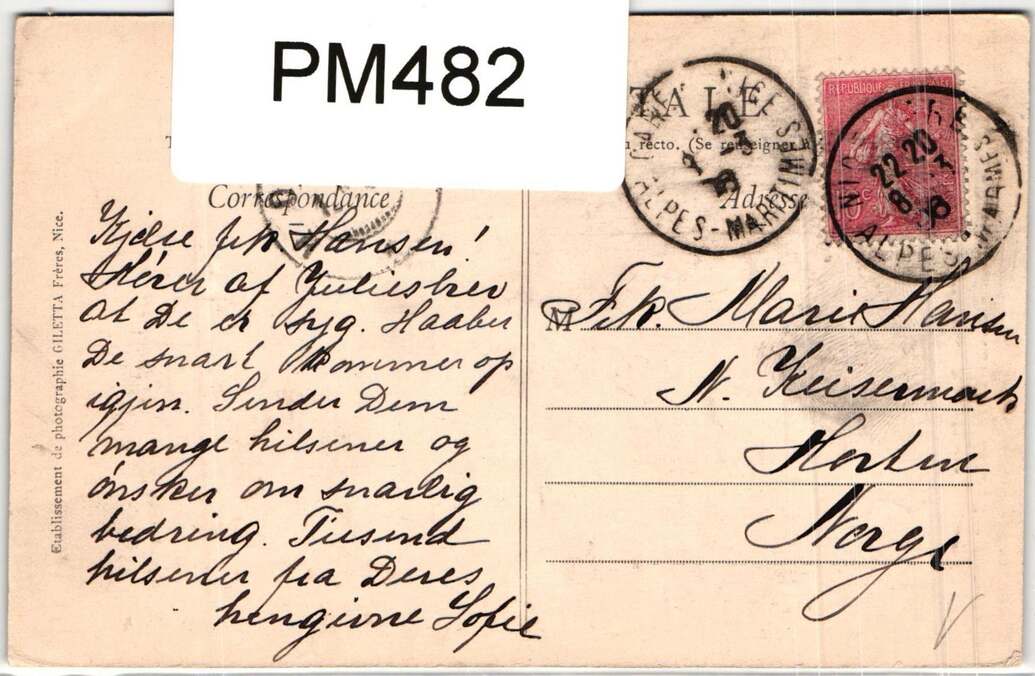 PM482
TALE
recto. (Se renseigner
Correspondance
Adresse
Kjære frk Hansen!
Hører af Juliesbrev
at De er syg. Haaber
De snart kommer op
igjen. Sender Dem
mange hilsener og
ønsker om snarlig
bedring. Tusend
hilsener fra Deres
hengivne Sofie
M Frk. Marie Hansen
N. Keisermark
Horten
Norge
Etablissement de photographie GILETTA Frères, Nice.
NICE
20
ALPES-MARITIMES
REPUBLIQUE
NICE
22 20
8
ALPES MARITIMES